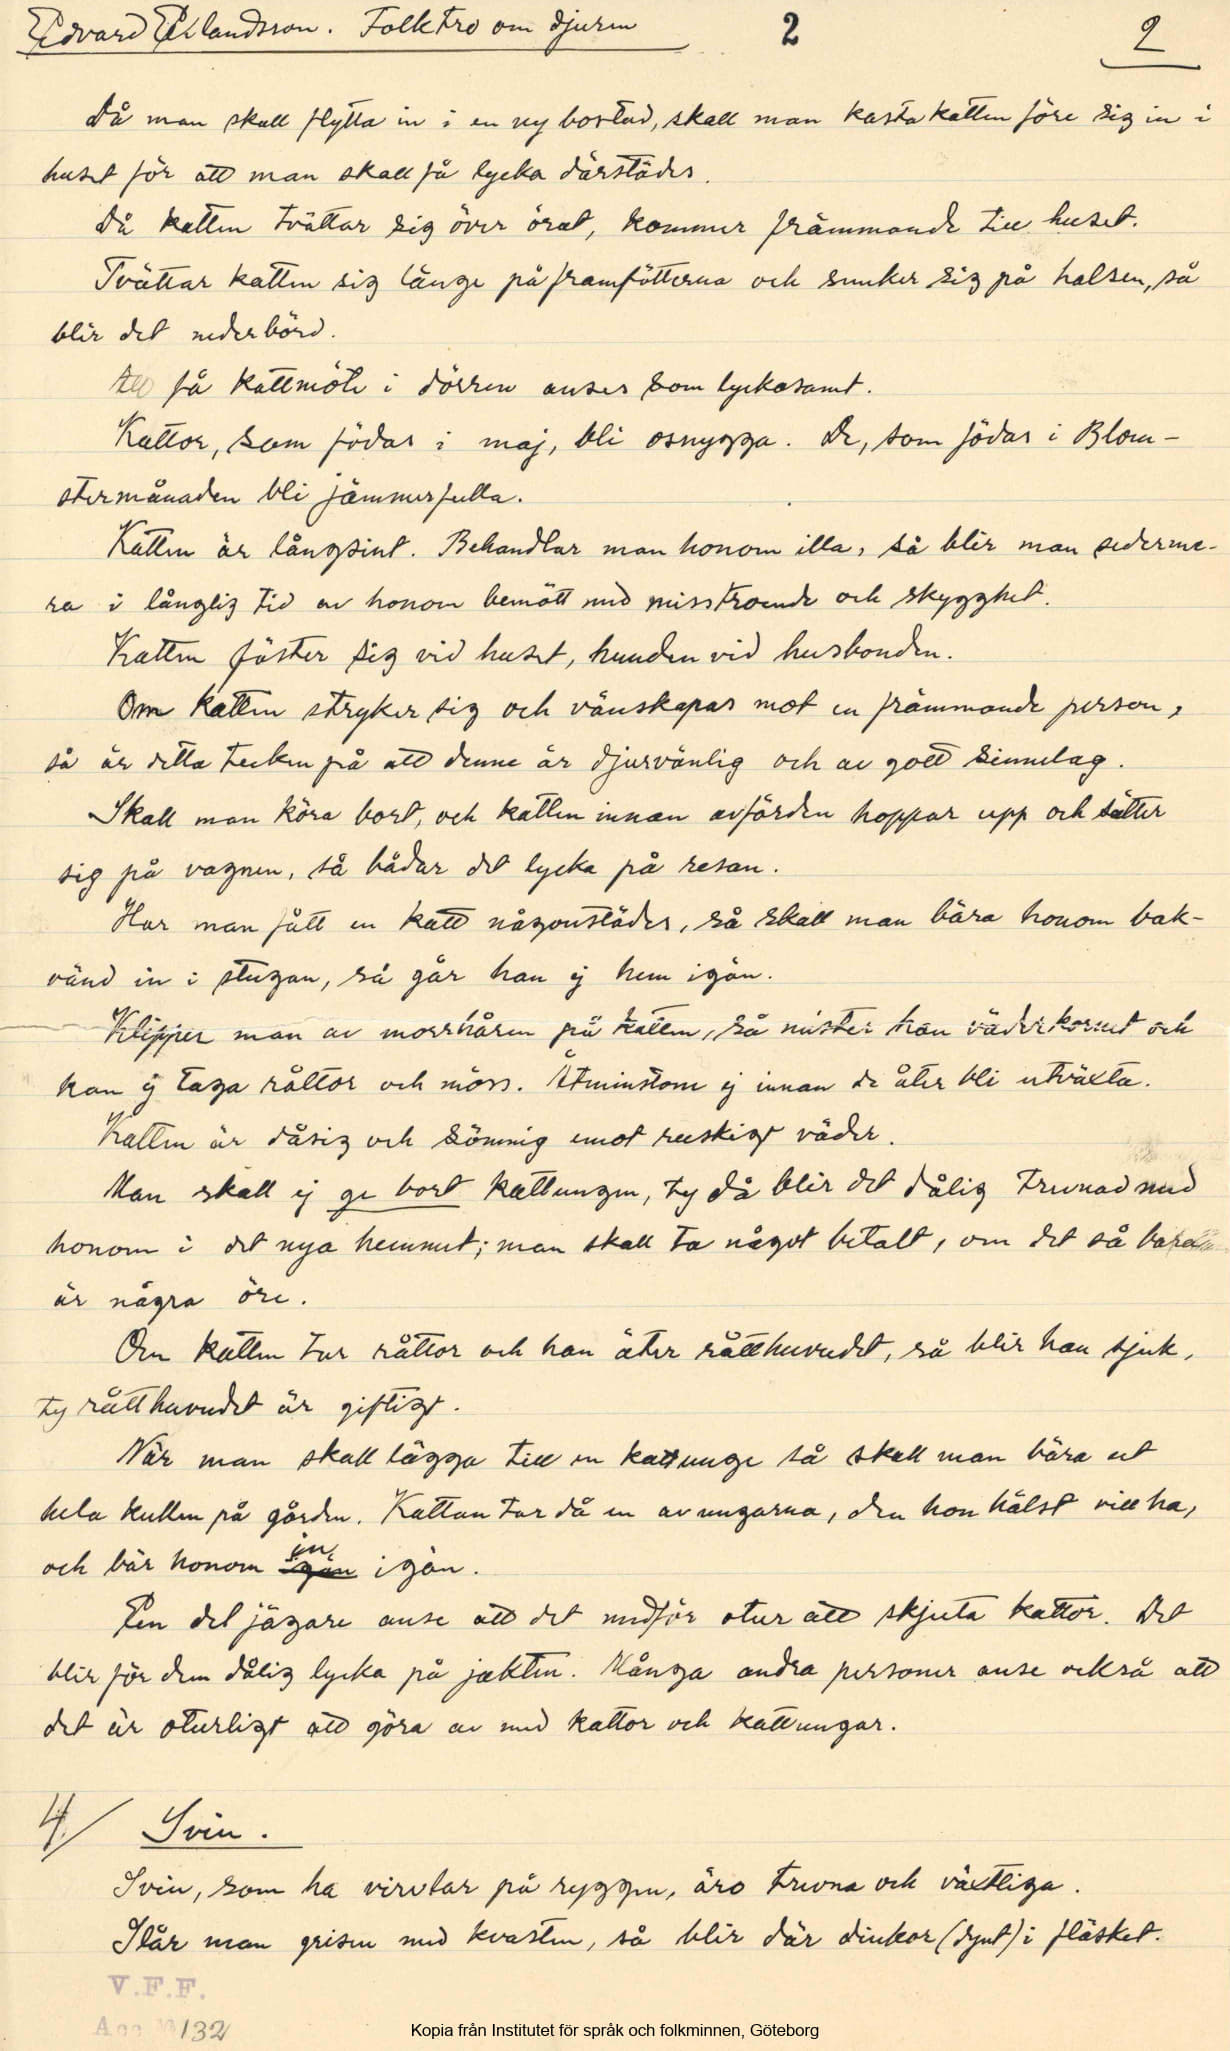 Edvard Erlandsson. Folktro om djuren 2 2
Då man skall flytta in i en ny bostad, skall man kasta katten före sig in i
huset för att man skall få lycka därstädes.
Då katten tvättar sig över örat, kommer främmande till huset.
Tvättar katten sig länge på framfötterna och smeker sig på halsen, så
blir det nederbörd.
Att få kattmöte i dörren anses som lyckosamt.
Kattor, som födas i maj, bli osnygga. De, som födas i Blom-
stermånaden bli jämmerfulla.
Katten är långsint. Behandlar man honom illa, så blir man sederme-
ra i långlig tid av honom bemött med misstroende och skygghet.
Katten fäster sig vid huset, hunden vid husbonden.
Om katten stryker sig och vänskapas mot en främmande person,
så är detta tecken på att denne är djurvänlig och av gott sinnelag.
Skall man köra bort, och katten innan avfärden hoppar upp och sätter
sig på vagnen, så bådar det lycka på resan.
Har man fått en katt någonstädes, så skall man bära honom bak-
vänd in i stugan, så går han ej hem igän.
Klipper man av morrhåren på katten, så mister han väderkornet och
kan ej taga råttor och möss. Åtminstone ej innan de åter bli utväxta.
Katten är dåsig och sömnig emot ruskigt väder.
Man skall ej ge bort kattungen, ty då blir det dålig trevnad med
honom i det nya hemmet; man skall ta något betalt, om det så bara
är några öre.
Om katten tar råttor och han äter råtthuvudet, så blir han sjuk,
ty råtthuvudet är giftigt.
När man skall lägga till en kattunge så skall man bära ut
hela kullen på gården. Kattan tar då en av ungarna, den hon hälst vill ha,
och bär honom igän in igän.
En del jägare anse att det medför otur att skjuta kattor. Det
blir för dem dålig lycka på jakten. Många andra personer anse också att
det är oturligt att göra av med kattor och kattungar.
4/ Svin.
Svin, som ha virvlar på ryggen, äro trevna och växtliga.
Slår man grisen med kvasten, så blir där dinkor (dynt) i fläsket.
V.F.F.
Acc 132
Kopia från Institutet för språk och folkminnen, Göteborg